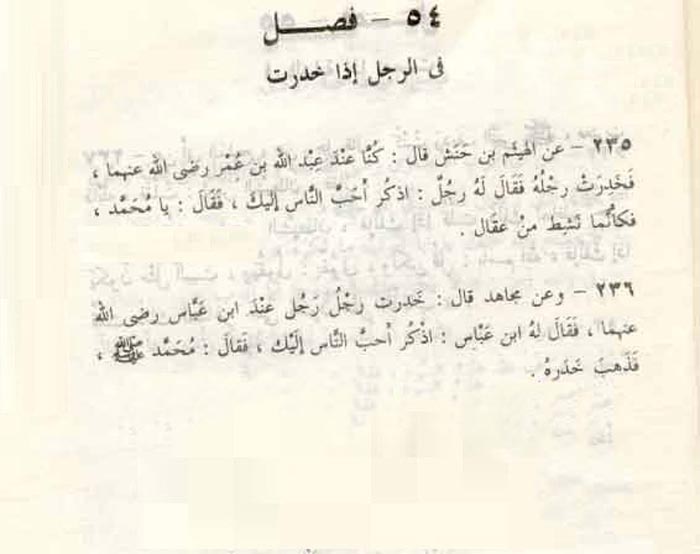 ٥٤ - فصــــل
فى الرجل إذا خدرت
٢٣٥ - عن الهيثم بن حَنَش قال : كُنَّا عنْدَ عبْد الله بن عُمْر رضى الله عنهما ،
فَخَدِرَتْ رجْلُهُ فَقَالَ لَهُ رجُلٌ : اذكُر أحَبَّ النَّاس إليكَ ، فَقَالَ : يا مُحَمَّد ،
فكأنَّما نَشِطَ منْ عقَال .
٢٣٦ - وعن مجاهد قال : خَدرت رجْلُ رَجُل عنْدَ ابن عَبَّاس رضى الله
عنهما ، فَقَالَ لهُ ابن عَبَّاس : اذْكُر أحبَّ النَّاس إلَيْك ، فَقالَ : مُحَمَّد ﷺ ،
فَذَهبَ خَدَرهُ .